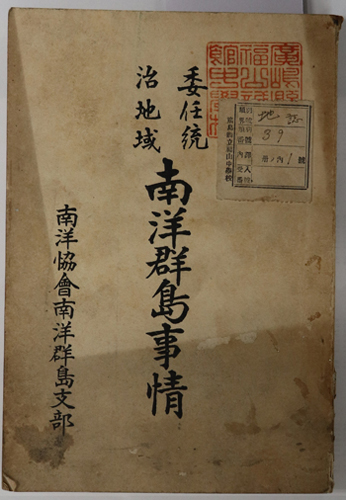 委任統
治地域
南洋群島事情
南洋協會南洋群島支部
地
39
冊ノ內1號